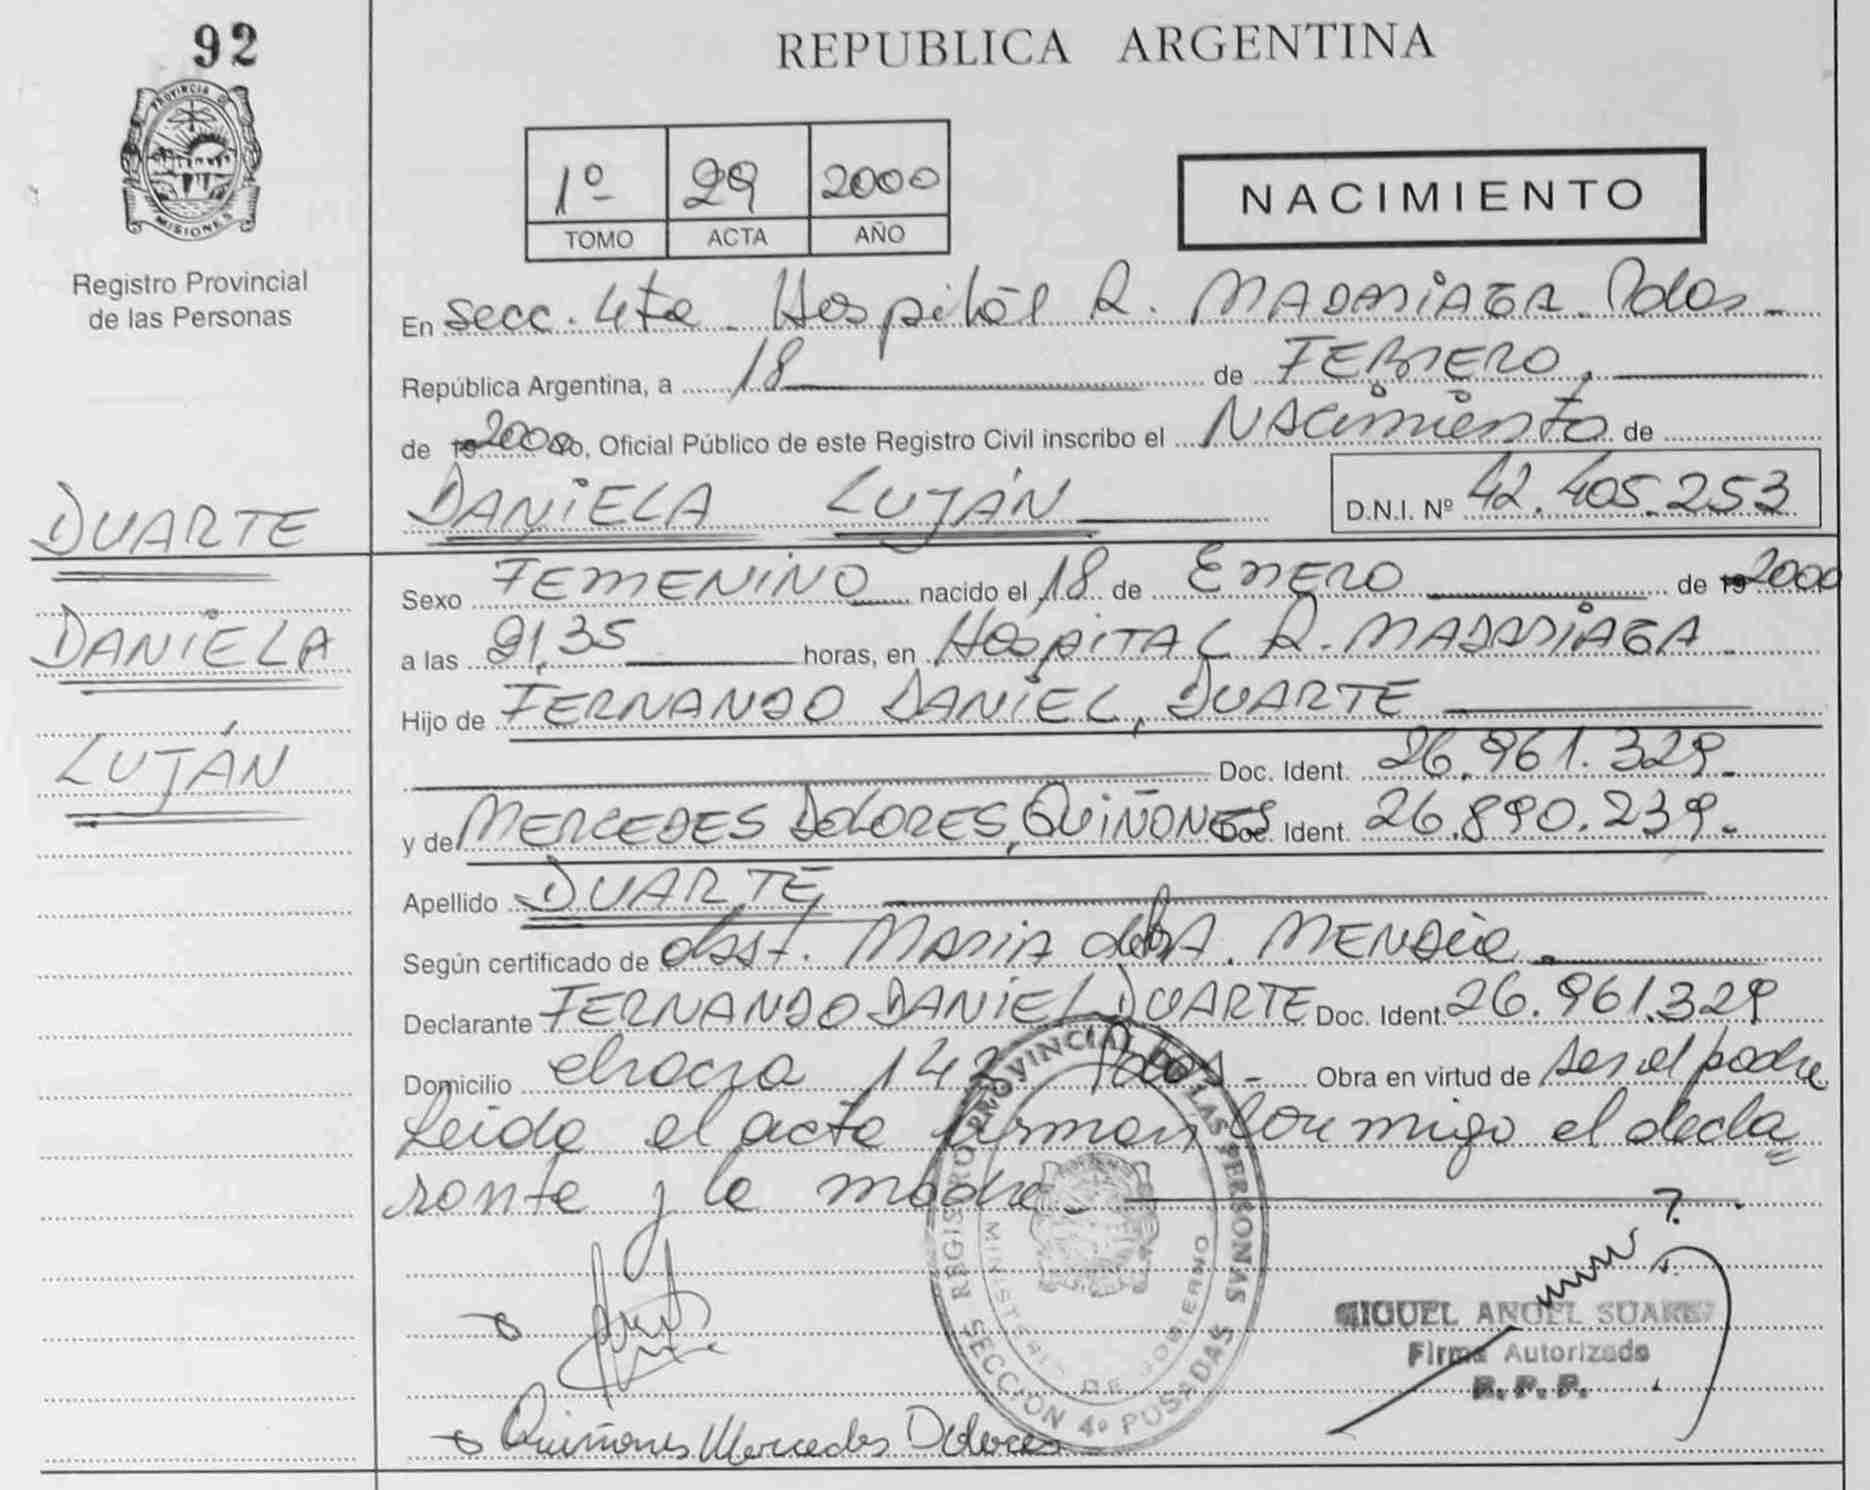 92
REPUBLICA ARGENTINA
PROVINCIA DE
MISIONES
Registro Provincial
de las Personas
1º 29 2000
TOMO ACTA AÑO
NACIMIENTO
En secc. 4ta. Hospital R. MADARIAGA. Pdas.
República Argentina, a 18 de FEBRERO,
de 19 2000 Yo, Oficial Público de este Registro Civil inscribo el NAcimiento de
DANIELA LUJÁN D.N.I. Nº 42.405.253
DUARTE
DANIELA
LUJÁN
Sexo FEMENINO nacido el 18 de ENERO de 19 2000
a las 21,35 horas, en HOSPITAL R. MADARIAGA.
Hijo de FERNANDO DANIEL, DUARTE
Doc. Ident. 26.961.329.
y de MERCEDES DOLORES, QUIÑONES Doc. Ident. 26.890.239.
Apellido DUARTE
Según certificado de obst. MARIA del A.
Declarante FERNANDO DANIEL DUARTE Doc. Ident. 26.961.329
Domicilio Pdas. Obra en virtud de ser el padre
leida el acta firman conmigo el decla
rante y la madre.
REGISTRO PROVINCIAL DE LAS PERSONAS
MINISTERIO DE GOBIERNO
SECCION 4º POSADAS
MIGUEL ANGEL SUAREZ
Firma Autorizada
R. P. P.
Quiñones Mercedes Dolores